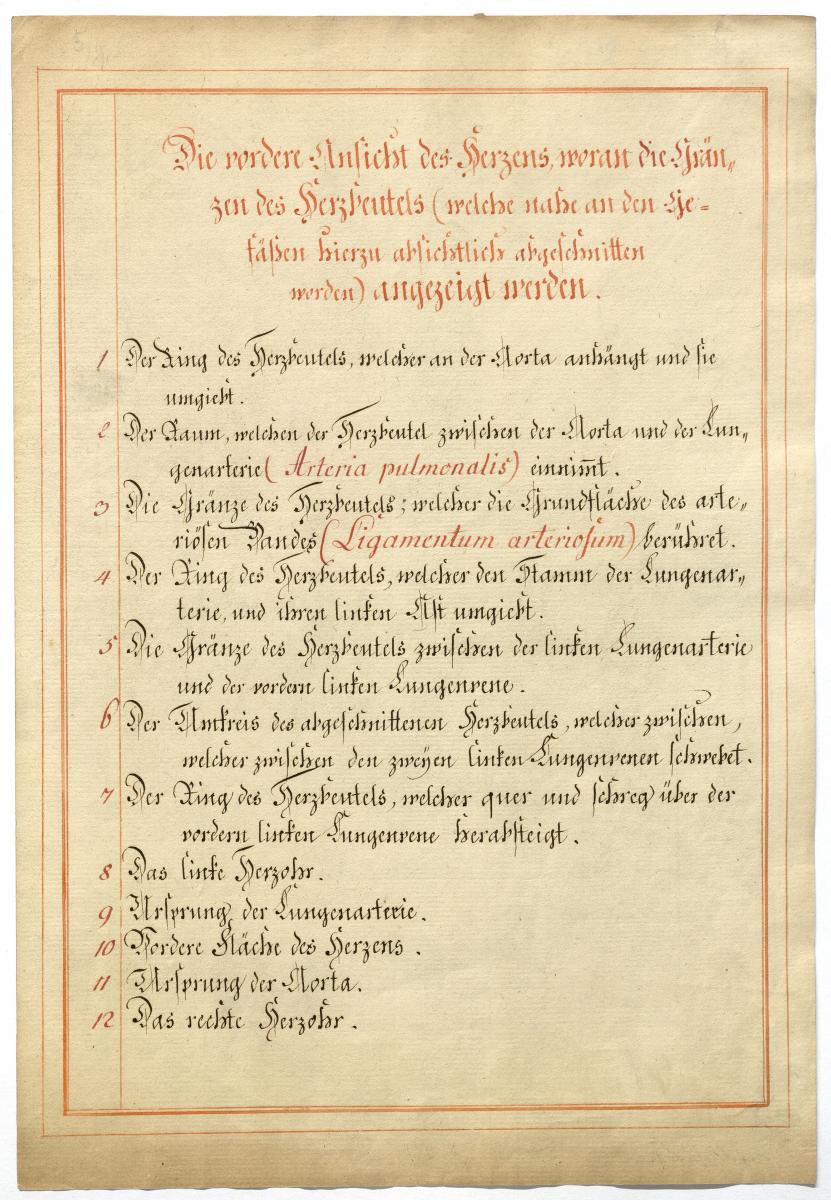 Die vordere Ansicht des Herzens, woran die Grän„
zen des Herzbeutels (welche nahe an den Ge=
fäßen hierzu absichtlich abgeschnitten
worden) angezeigt werden.
1 Der Ring des Herzbeutels, welcher an der Aorta anhängt und sie
umgiebt.
2 Der Raum, welchen der Herzbeutel zwischen der Aorta und der Lun„
genarterie (Arteria pulmonalis) einnim̅t.
3 Die Gränze des Herzbeutels; welcher die Grundfläche des arte„
riösen Bandes (Ligamentum arteriosum) berühret.
4 Der Ring des Herzbeutels, welcher den Stamm der Lungenar„
terie, und ihren linken Ast umgiebt.
5 Die Gränze des Herzbeutels zwischen der linken Lungenarterie
und der vordern linken Lungenvene.
6 Der Umkreis des abgeschnittenen Herzbeutels, welcher zwischen,
welcher zwischen den zweyen linken Lungenvenen schwebet.
7 Der Ring des Herzbeutels, welcher quer und schreg über der
vordern linken Lungenvene herabsteigt.
8 Das linke Herzohr.
9 Ursprung der Lungenarterie.
10 Vordere Fläche des Herzens.
11 Ursprung der Aorta.
12 Das rechte Herzohr.